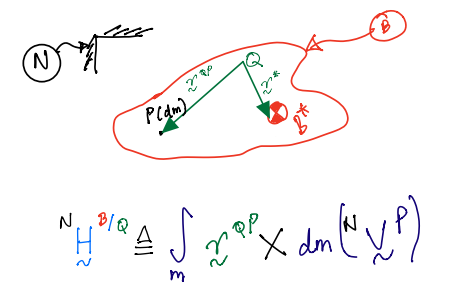 B
N
Q
r^QP
r^*
P(dm)
B^*
^N H^B/Q ≜ ∫_m r^QP × dm(^N V^P)